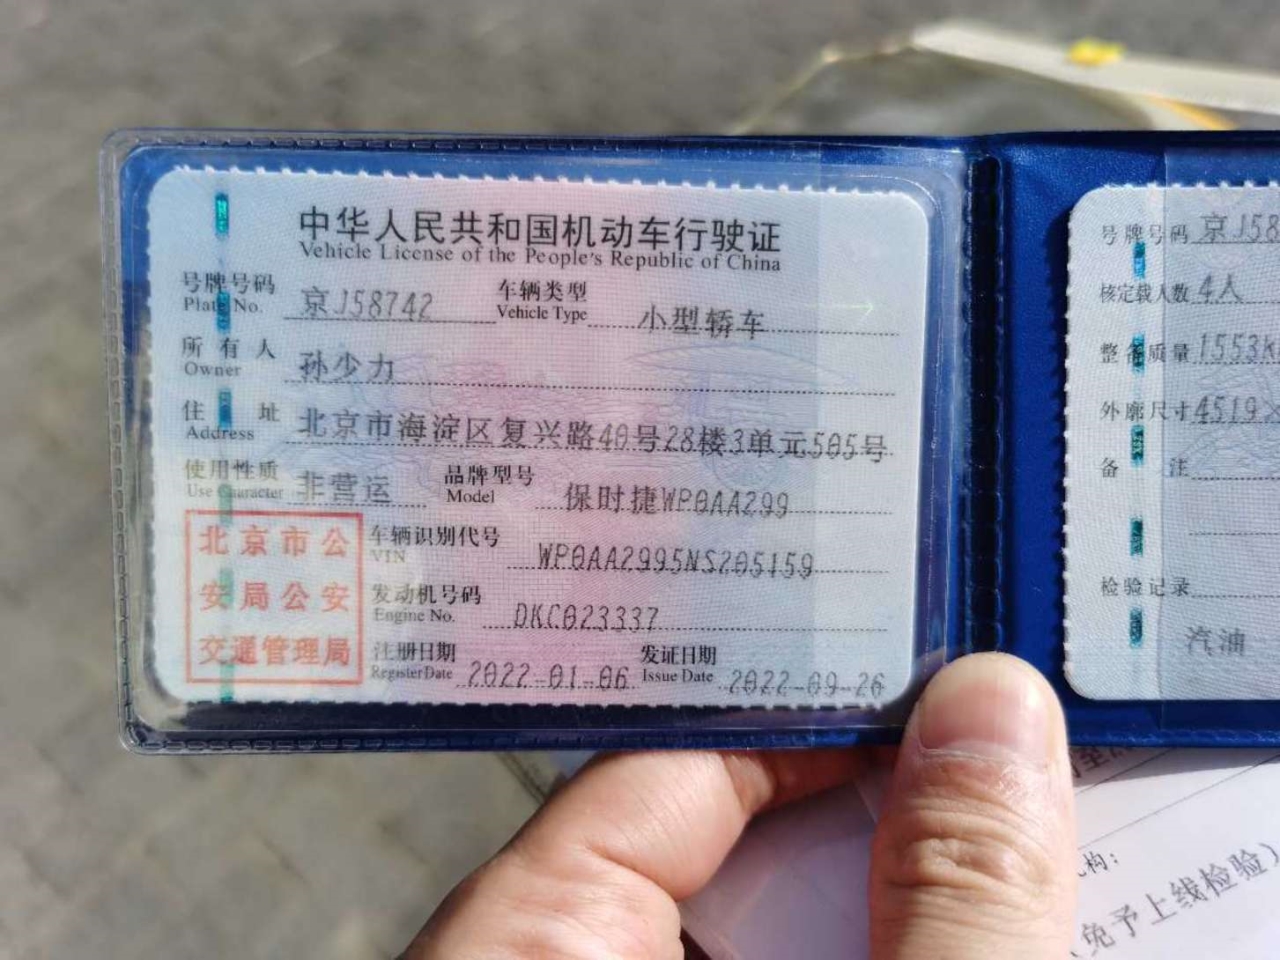 中华人民共和国机动车行驶证
Vehicle License of the People's Republic of China
号牌号码 京J58742 车辆类型 小型轿车
Plate No. Vehicle Type
所有人 孙少力
Owner
住址 北京市海淀区复兴路40号28楼3单元505号
Address
使用性质 非营运 品牌型号 保时捷WP0AA299
Use Character Model
北京市公
安局公安
交通管理局
车辆识别代号 WP0AA2995NS205159
VIN
发动机号码 DKC023337
Engine No.
注册日期 2022-01-06 发证日期 2022-09-26
Register Date Issue Date
号牌号码 京J58
核定载人数 4人
整备质量 1553K
外廓尺寸 4519×
备注
检验记录
汽油
构:
免予上线检验)